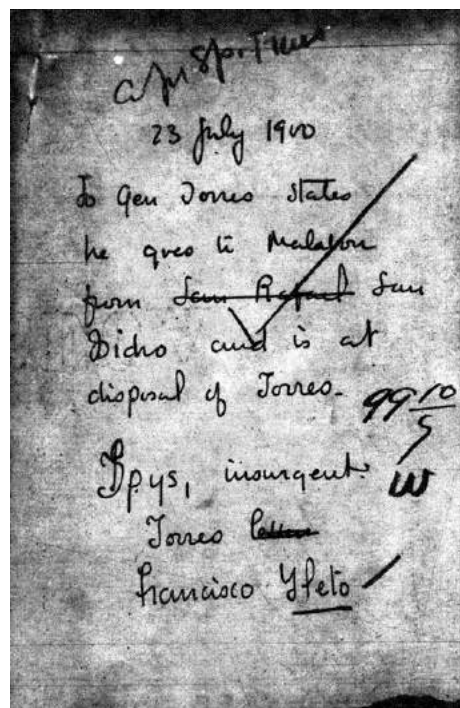 23 July 1900
To Gen Torres States
he goes to Malabon
from San Rafael San
Isidro and is at
disposal of Torres.
99 10/5
Spys, insurgent.
W
Torres letter
Francisco Ysleto